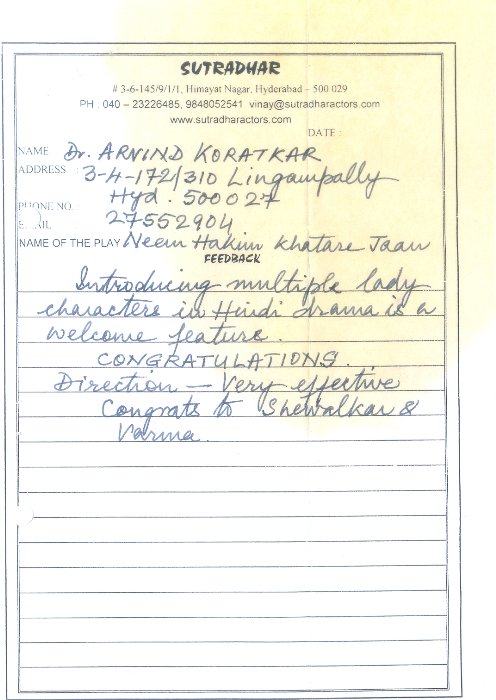 SUTRADHAR
# 3-6-145/9/1/1, Himayat Nagar, Hyderabad – 500 029
PH : 040 – 23226485, 9848052541 vinay@sutradharactors.com
www.sutradharactors.com
DATE :
NAME Dr. ARVIND KORATKAR
ADDRESS : 3-4-172/310 Lingampally
Hyd. 500027
PHONE NO. :
27552904
NAME OF THE PLAY Neem Hakim Khatare Jaan
FEEDBACK
Introducing multiple lady
characters in Hindi drama is a
welcome feature.
CONGRATULATIONS.
Direction — Very effective
Congrats to Shewalkar &
Varma.